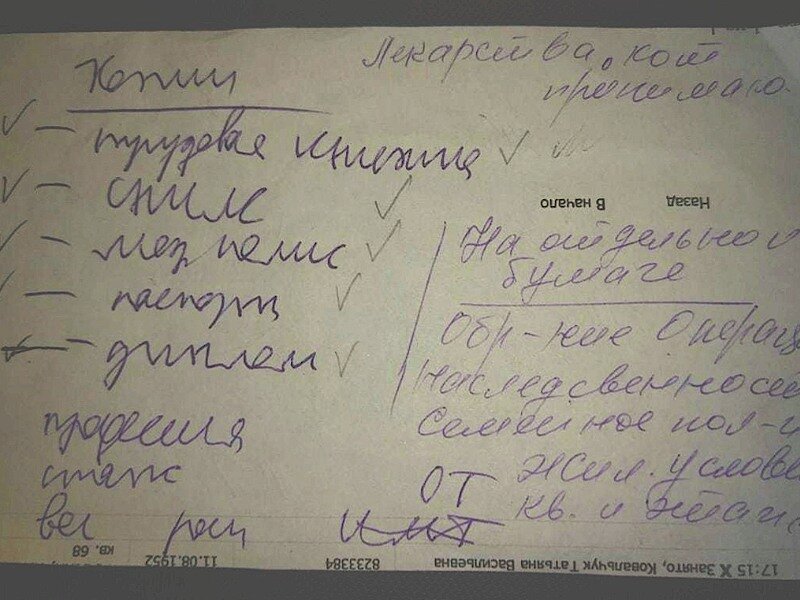 Копии
— трудовая книжка
— СНИЛС
— мед полис
— паспорт
— диплом
професия
стаж
вес рост ИМТ
Лекарства, кот
принимаю
Назад В начало
На отдельной
бумаге
Обр-ние Операц
Наследсвенност
Семейное пол-
ОТ Жил. услови
кв. и этаж
17:15 X Занято, Ковальчук Татьяна Васильевна 8233384 11.08.1952 кв. 68